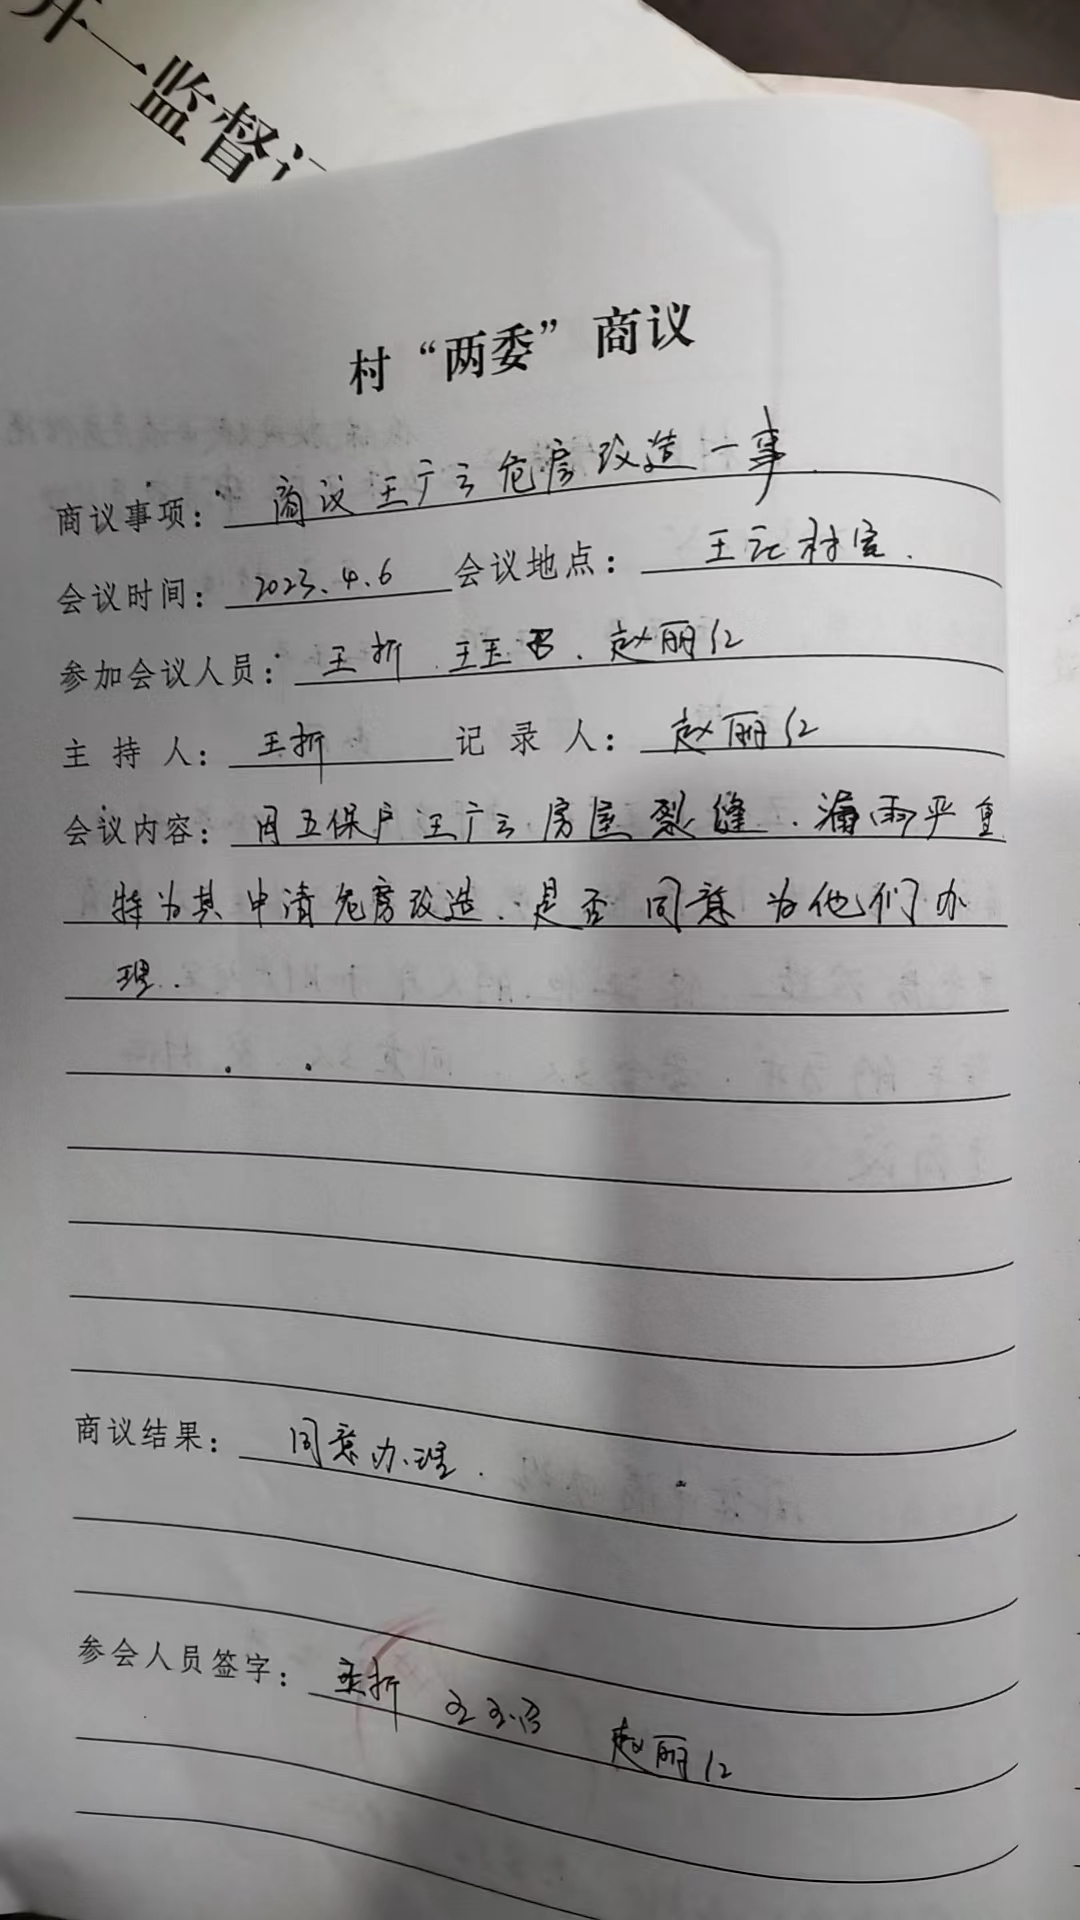 开一监督
村“两委”商议
商议事项：商议王广云危房改造一事
会议时间：2023.4.6 会议地点：王 村室.
参加会议人员：王折.王玉 、赵丽红
主持人：王折 记录人：赵丽红
会议内容：因五保户王广云房屋裂缝、漏雨严重
特为其申请危房改造、是否同意为他们办
理.
商议结果：同意办理.
参会人员签字：王折 王玉 赵丽红